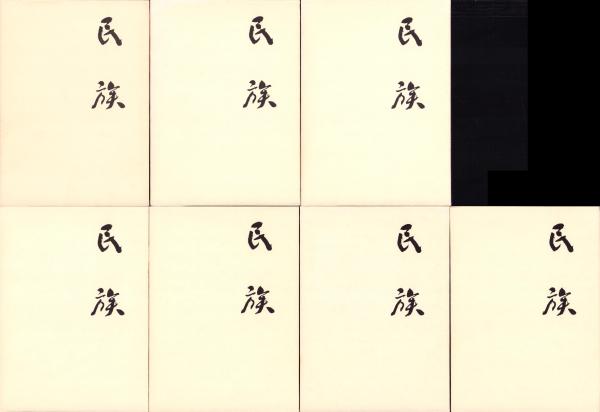 民族
民族
民族
民族
民族
民族
民族